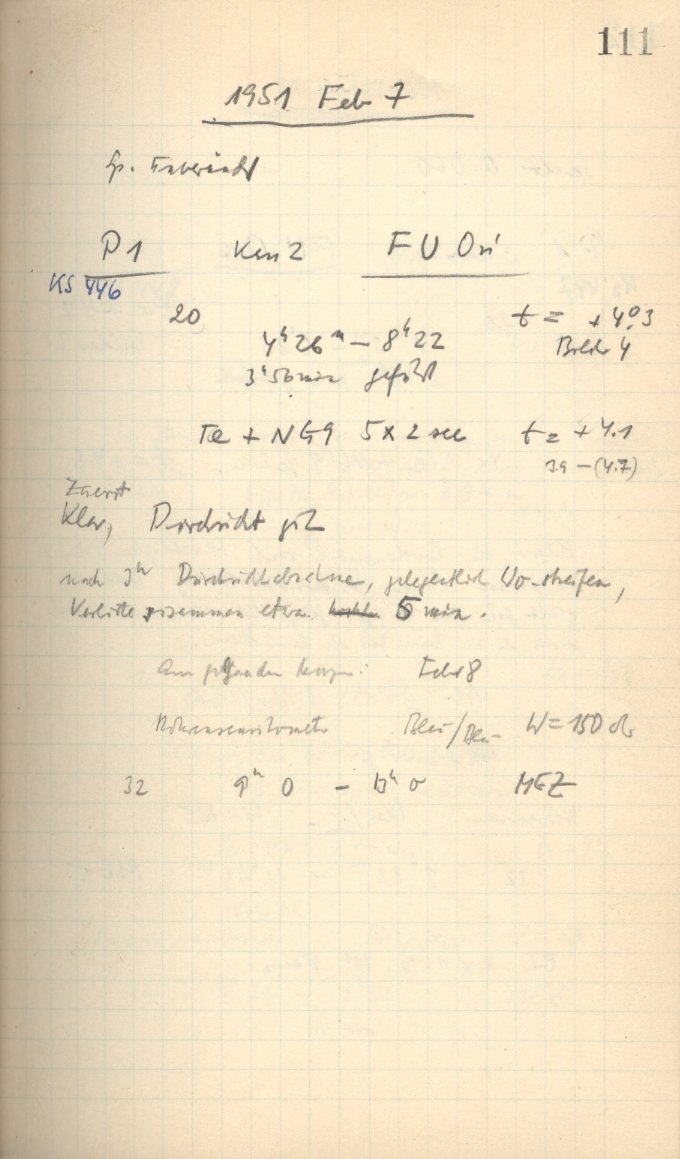 111
1951 Feb 7
Sp.
P1 Kas 2 FU Ori
KS 446
20 t = +4°.3
4ʰ26ᵐ — 8ʰ22 Bilder 4
3ʰ56min geführt
Te + NG9 5×2 sec t = +4.1
3.9 — (4.7)
Zuerst
Klar, Durchsicht gut
nach 3ʰ Durchsichtabnahme, gelegentlich Wo-streifen,
Verluste zusammen etwa 5 min.
Am folgenden Morgen: Febr 8
Röhrensensitometer Blau/Blau W = 150
32 9ʰ 0 — 13ʰ 0 MEZ